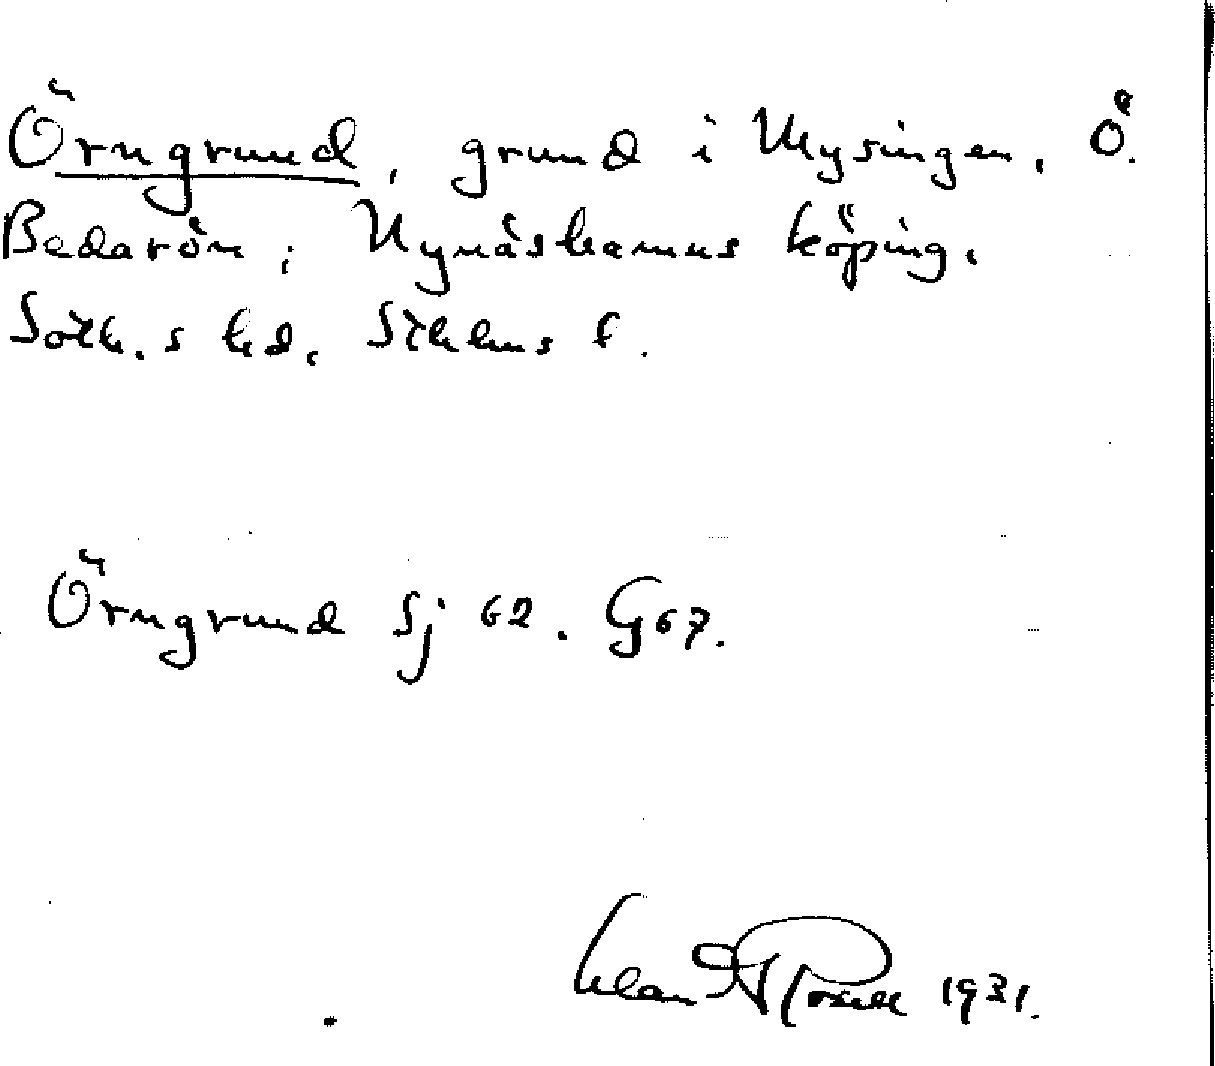 Örngrund, grund i Mysingen, Ö.
Bedarön; Nynäshamns köping,
Soth. s hd, Sthlms l.
Örngrund Sj 62. G 67.
1931.